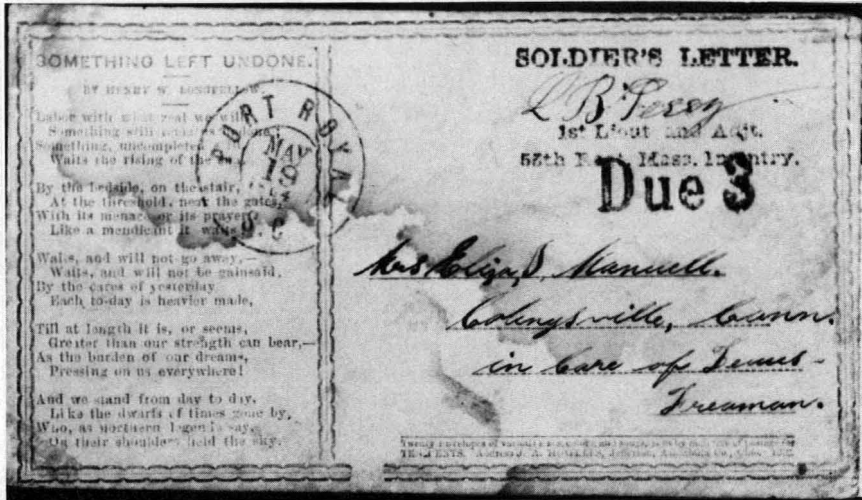 SOMETHING LEFT UNDONE.
BY HENRY W. LONGFELLOW.
Labor with what zeal we will,
Something still remains undone,
Something, uncompleted still,
Waits the rising of the sun.
By the bedside, on the stair,
At the threshold, near the gates,
With its menace or its prayer,
Like a mendicant it waits;
Waits, and will not go away,—
Waits, and will not be gainsaid,
By the cares of yesterday
Each to-day is heavier made,
Till at length it is, or seems,
Greater than our strength can bear,—
As the burden of our dreams,
Pressing on us everywhere!
And we stand from day to day,
Like the dwarfs of times gone by,
Who, as northern legends say,
On their shoulders held the sky.
PORT ROYAL
MAY
19
S.C
SOLDIER'S LETTER.
L B Perry
1st Lieut and Adjt.
55th Regt. Mass. Infantry.
Due 3
Mrs Eliza, D. Manuell.
Colinsville, Conn.
in Care of
Freaman.
Twenty envelopes of various
TEN CENTS. Address J. A.